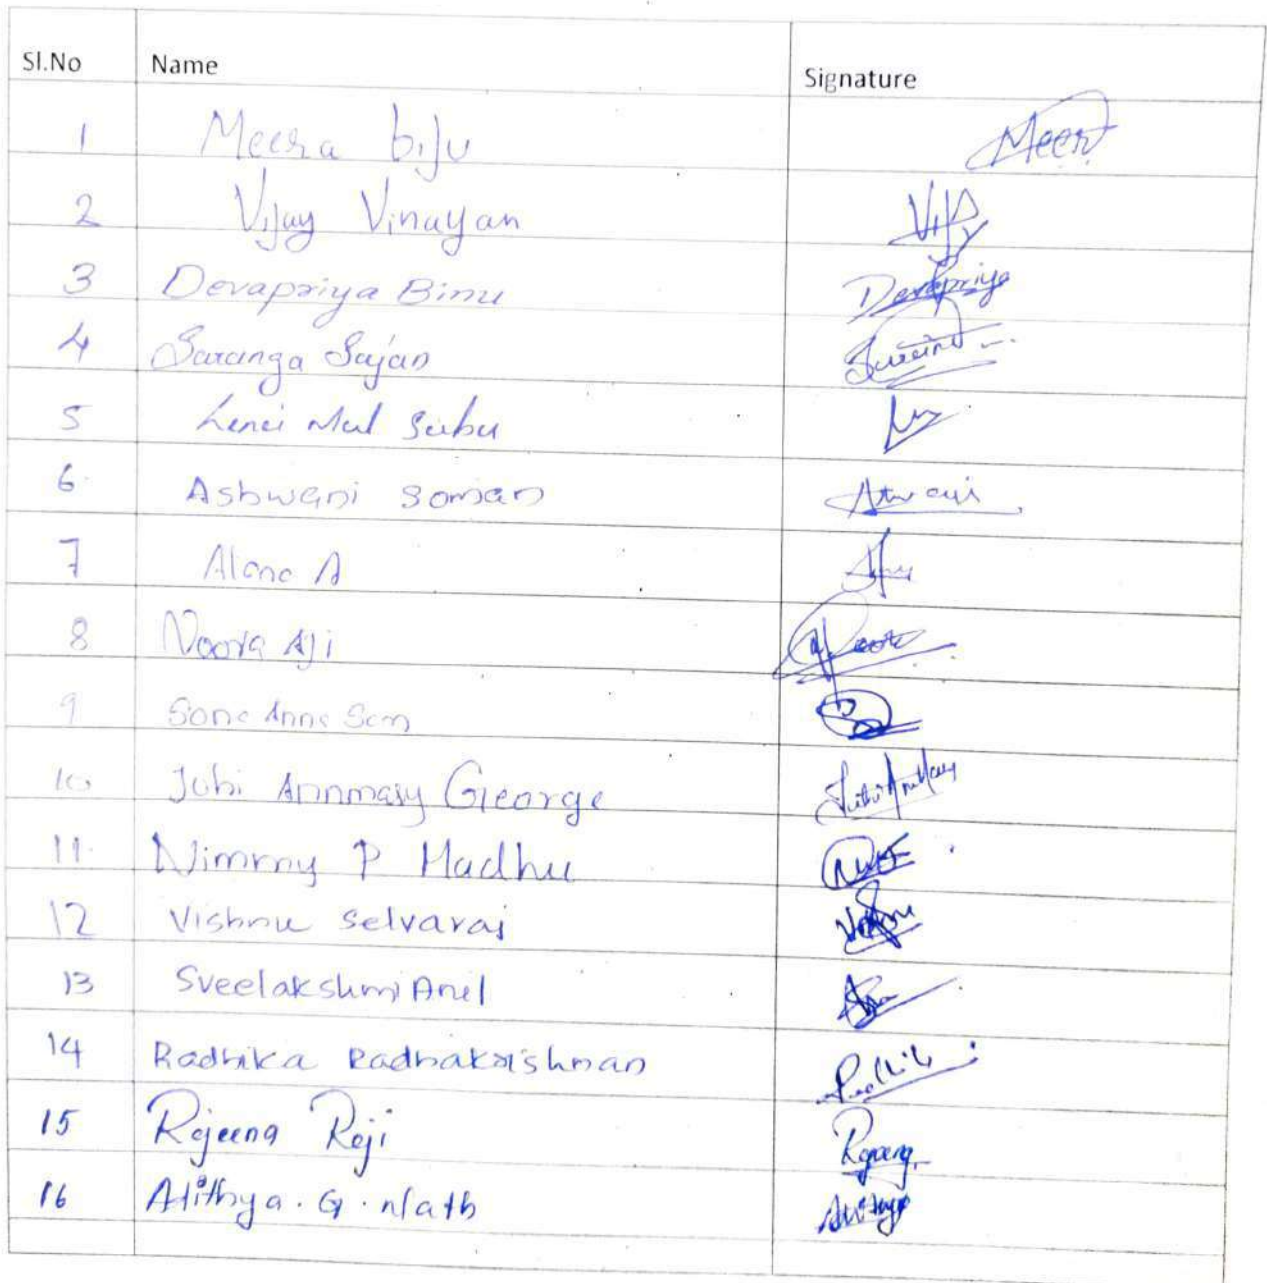 Sl.No Name Signature
1 Meera biju Meera
2 Vijay Vinayan Vijay
3 Devapriya Binu Devapriya
4 Saranga Sajan
5 Subu
6. Ashwani Soman
7 Alana A
8 Noora Aji Noora
9 Sona Anna Sam
10 Jubi Annmary George
11. Nimmy P Madhu
12 Vishnu Selvaraj Vishnu
13 Sreelakshmi Anil
14 Radhika Radhakrishnan Radhika
15 Rejeena Reji Rejeena
16 Atithya. G. nath